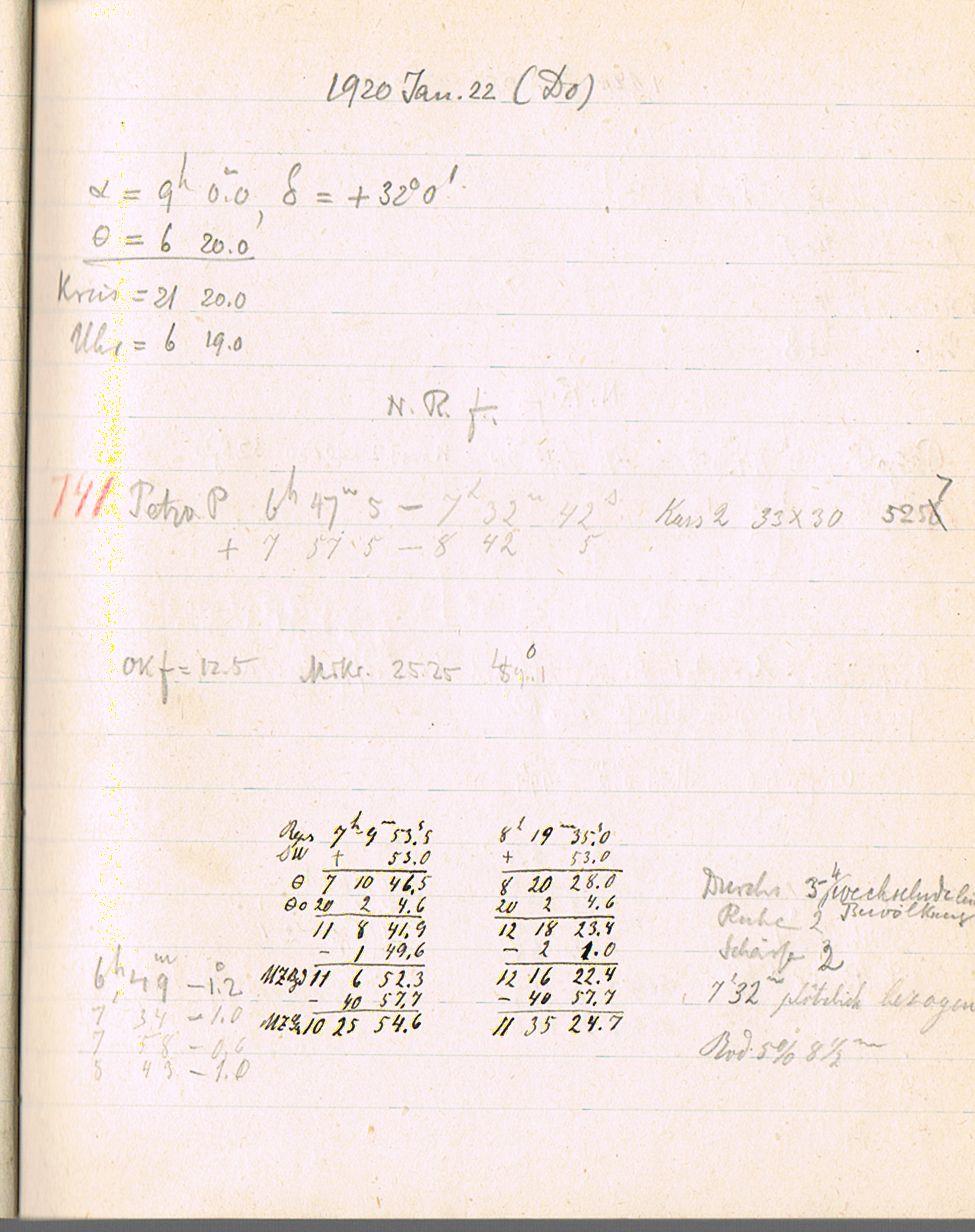 1920 Jan. 22 (Do)
α = 9ʰ 0ᵐ.0, δ = +32° 0'
θ = 6 20.0
Kreis = 21 20.0
Uhr = 6 19.0
N. R. f.
741 Petra P 6ʰ 47ᵐ 5 – 7ʰ 32ᵐ 42ˢ Kass 2 33 x 30 5257
+ 7 57.5 – 8 42 5
OKf = 12.5 Mikr. 25.25
Reg 7ʰ 9ᵐ 53ˢ.5 8ʰ 19ᵐ 35ˢ.0
+ 53.0 + 53.0
θ 7 10 46.5 8 20 28.0
θo 20 2 4.6 20 2 4.6
11 8 41.9 12 18 23.4
– 1 49.6 – 2 1.0
11 6 52.3 12 16 22.4
– 40 57.7 – 40 57.7
10 25 54.6 11 35 24.7
6ʰ 49ᵐ –1°.2
7 34 –1.0
7 58 –0.6
8 43 –1.0
Durchs 3-4 wechselnde
Bewölkung
Ruhe 2
Schärfe 2
7ʰ32ᵐ plötzlich bezogen
Rod. 5% 8½ᵐ